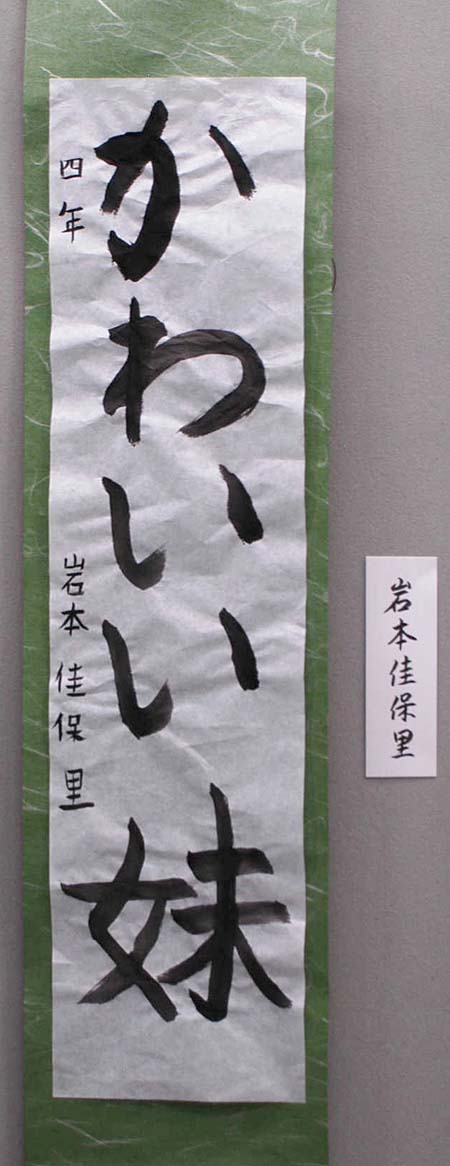 かわいい妹
四年 岩本佳保里
岩本佳保里